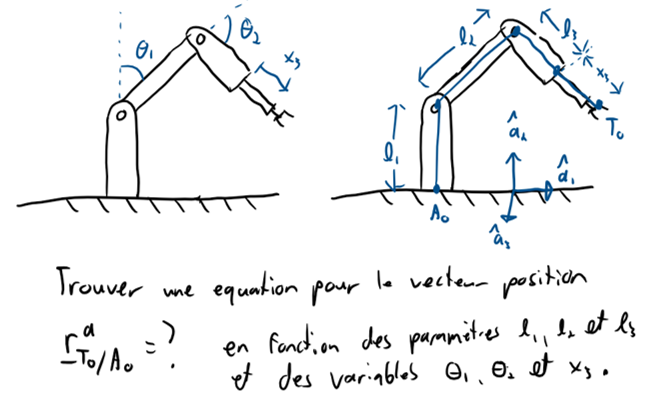 θ₁
θ₂
x₃
l₂
l₃
x₃
T₀
l₁
â₂
â₁
A₀
â₃
Trouver une equation pour le vecteur position
r^a_T₀/A₀ = ? en fonction des paramètres l₁, l₂ et l₃
et des variables θ₁, θ₂ et x₃.